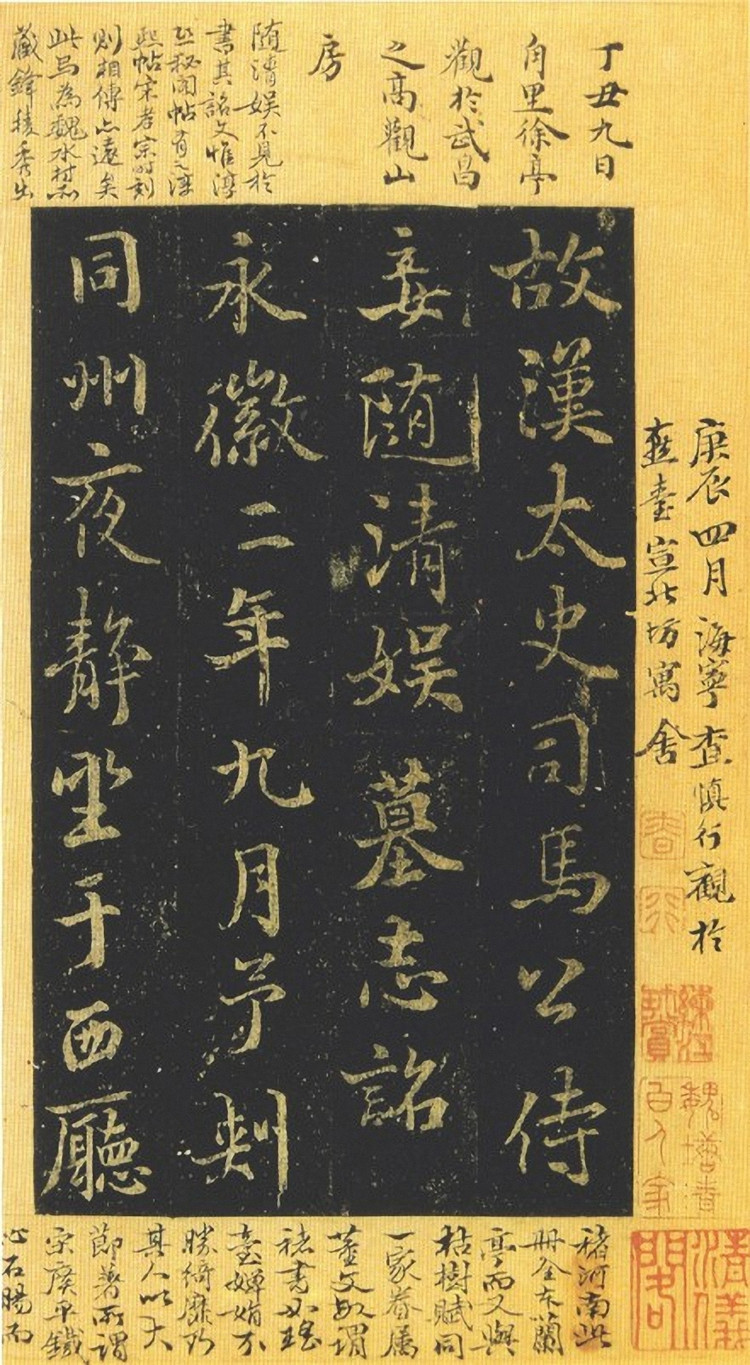 故漢太史司馬公侍
妾随清娱墓志銘
永徽二年九月予刾
同州夜静坐于西廳
丁丑九日
甪里徐亭
觀於武昌
之高觀山
房
随清娱不見於
書其銘文惟淳
熙秘閣帖有之淳
熙帖宋孝宗時刻
則相傳亦遠矣
此与為魏水村
藏鋒稜秀出
庚辰四月海寧查慎行觀於
燕臺宣北坊寓舍
褚河南此
冊全在蘭
亭而又與
枯樹賦同
一家眷屬
董文敏謂
褚書如瑤
臺嬋娟不
勝綺靡乃
其人以大
節著所謂
宋廣平鐵
心石腸而
清儀
閣